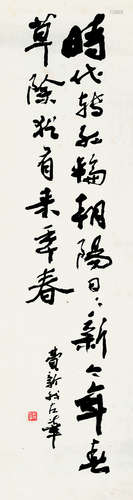 時代轉紅輪朝陽日日新今年春
草除猶有來年春
費新我左筆